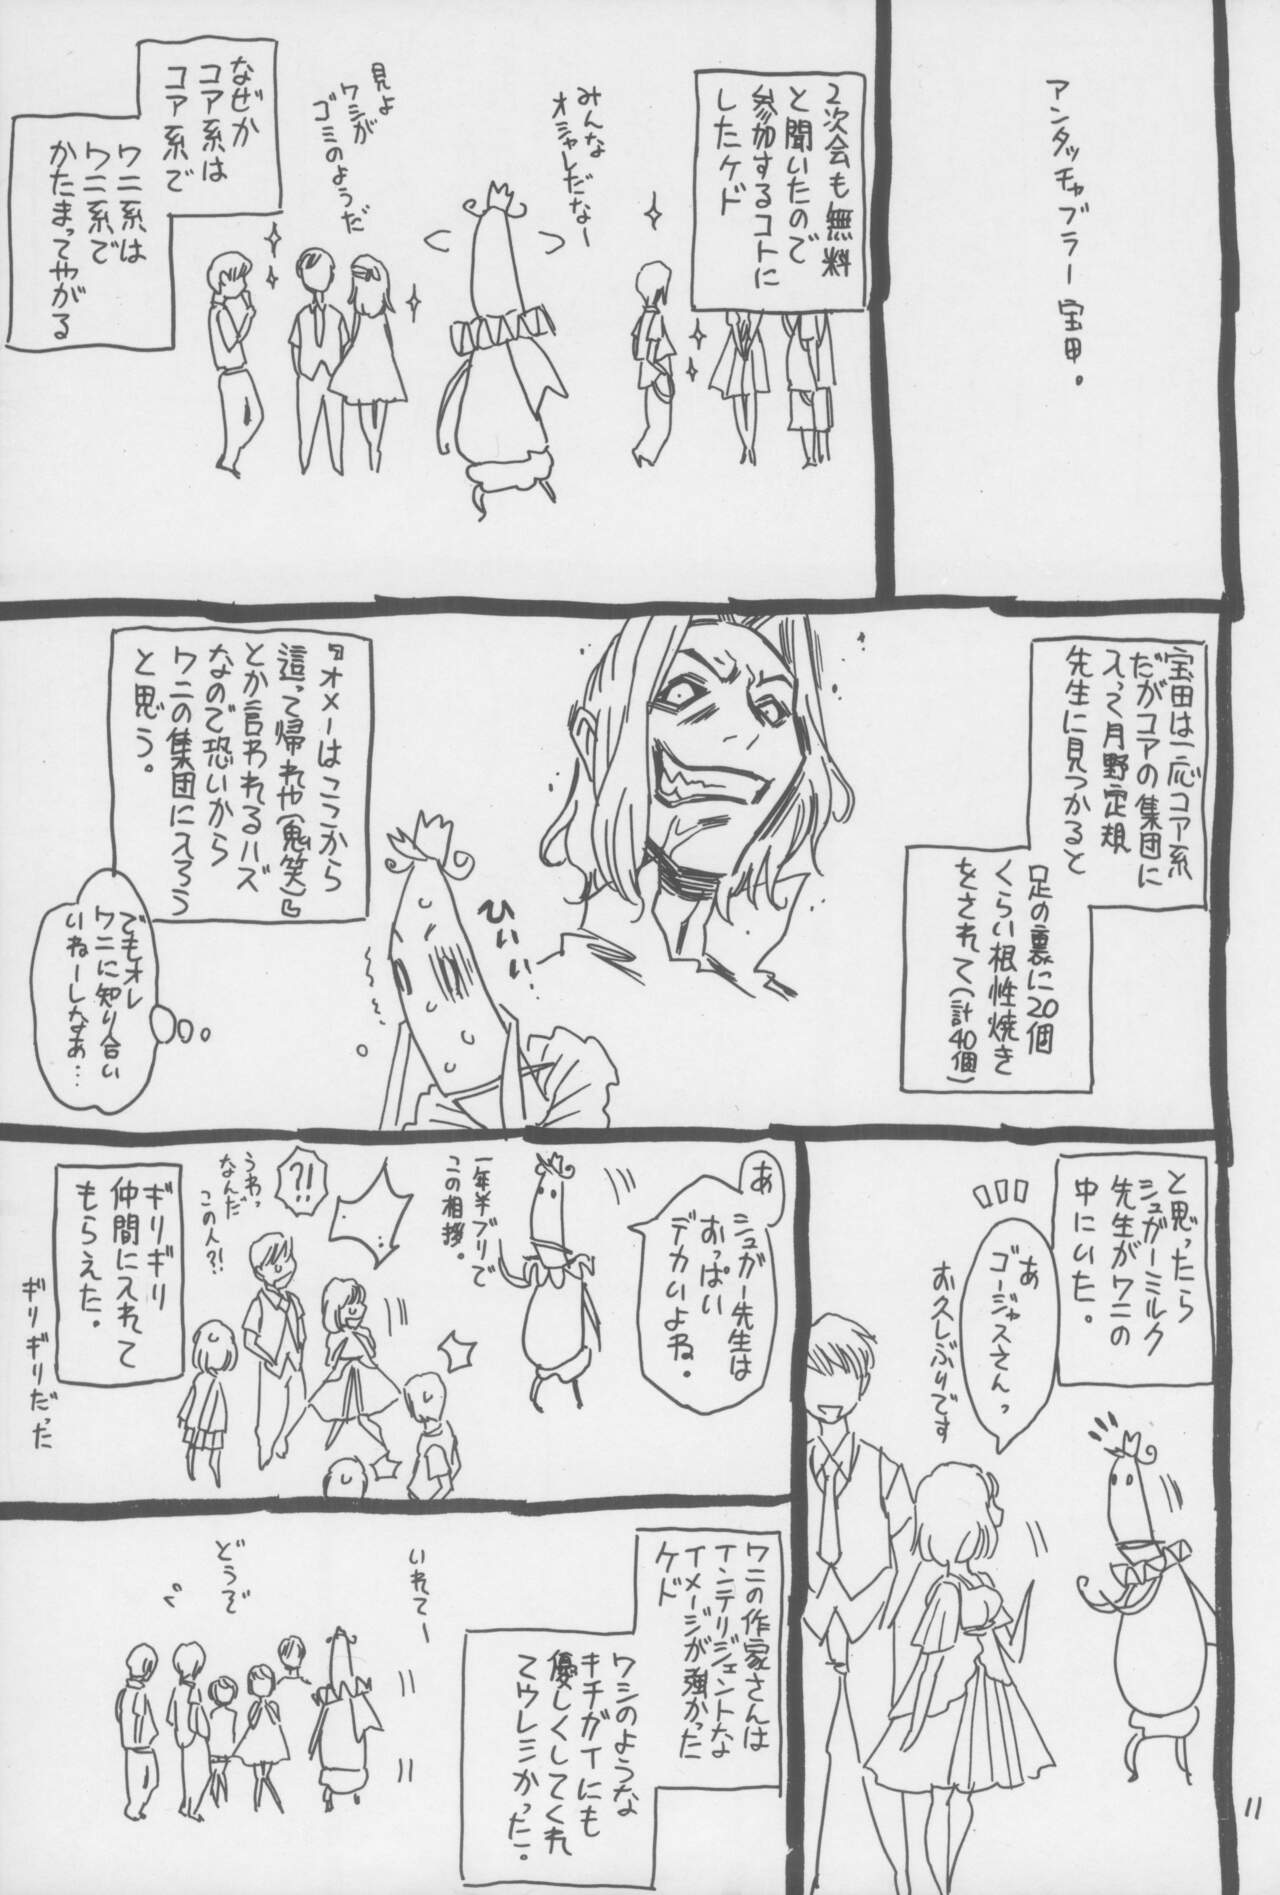 アンタッチャブラー宝田。
2次会も無料
と聞いたので
参加するコトに
したケド
みんな
オシャレだなー
見よ
ワシが
ゴミのようだ
なぜか
コア系は
コア系で
ワニ系は
ワニ系で
かたまってやがる
宝田は一応コア系
だがコアの集団に
入って月野定規
先生に見つかると
足の裏に20個
くらい根性焼き
をされて(計40個)
ひいぃぃ
『オメーはここから
這って帰れや(鬼笑)』
とか言われるハズ
なので恐いから
ワニの集団に入ろう
と思う。
でもオレ
ワニに知り合い
いねーしなぁ…
と思ったら
シュガーミルク
先生がワニの
中にいた。
あ
ゴージャスさんっ
お久しぶりです
あ
シュガー先生は
おっぱい
デカいよね。
一年半ブリで
この相拶。
?!
うわっ
なんだ
この人?!
ギリギリ
仲間に入れて
もらえた。
ギリギリだった
ワニの作家さんは
インテリジェントな
イメージが強かった
ケド
ワシのような
キチガイにも
優しくしてくれ
てウレシかったー。
いれてー
どうぞ
11